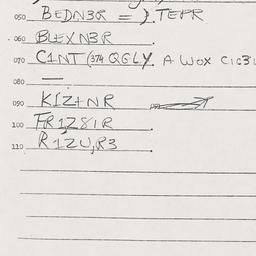 050 BEDN3R = }. TEPR
060 BLEXN3R.
070 C1NT (374 QGLY. A WOX C1G3
080 —
090 KIZ+NR
100 FR1Z81R.
110 R1ZU,R3